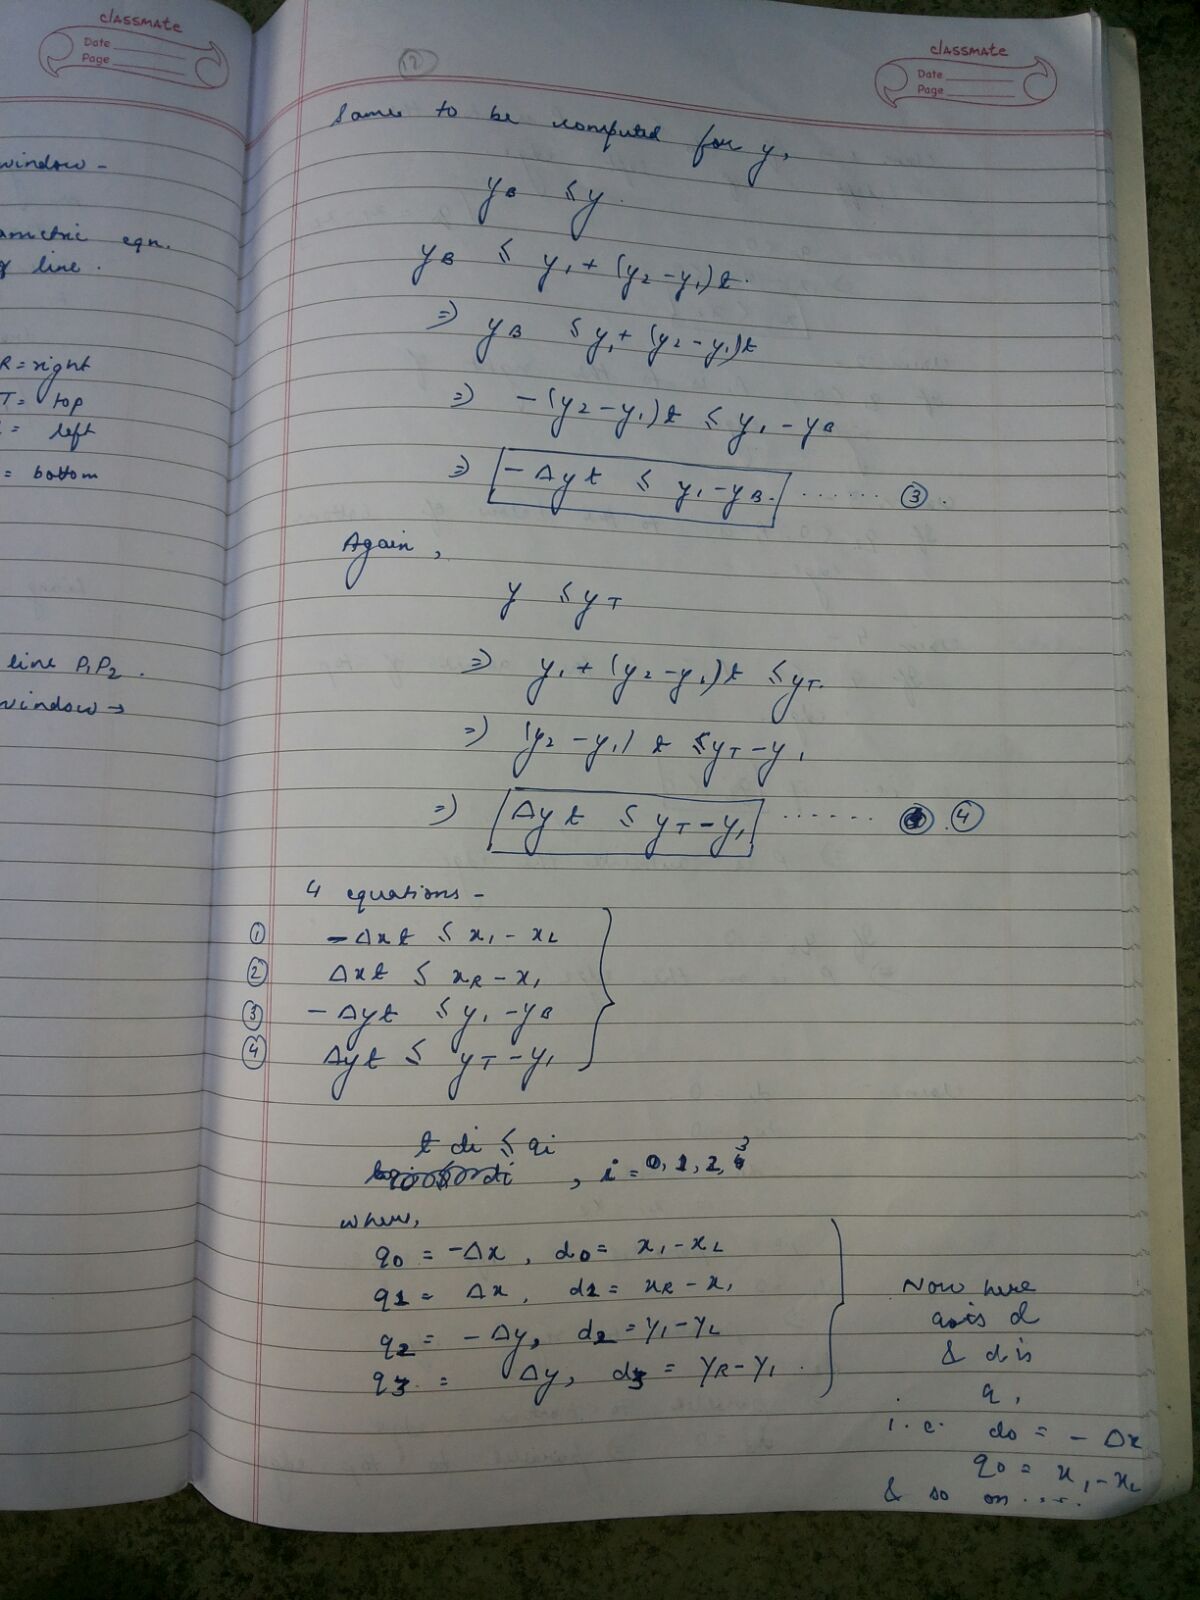 classmate
Date
Page
window -
ametric eqn.
of line.
R = right
T = top
= left
= bottom
line P₁P₂.
window →
classmate
Date
Page
12
Same to be computed for y,
y_B ≤ y.
y_B ≤ y₁ + (y₂ - y₁)t.
⇒ y_B ≤ y₁ + (y₂ - y₁)t
⇒ -(y₂ - y₁)t ≤ y₁ - y_B
⇒ -Δy t ≤ y₁ - y_B. ...... ③.
Again,
y ≤ y_T
⇒ y₁ + (y₂ - y₁)t ≤ y_T.
⇒ (y₂ - y₁) t ≤ y_T - y₁
⇒ Δy t ≤ y_T - y₁ ...... ④
4 equations -
① -Δx t ≤ x₁ - x_L
② Δx t ≤ x_R - x₁
③ -Δy t ≤ y₁ - y_B
④ Δy t ≤ y_T - y₁
t di ≤ qi
, i = 0, 1, 2, 3
where,
q0 = -Δx, d0 = x₁ - x_L
q1 = Δx, d1 = x_R - x₁
q2 = -Δy, d2 = y₁ - y_L
q3 = Δy, d3 = y_R - y₁.
Now here
q is d
& d is
q,
i.e. d0 = -Δx
q0 = x₁ - x_L
& so on ....